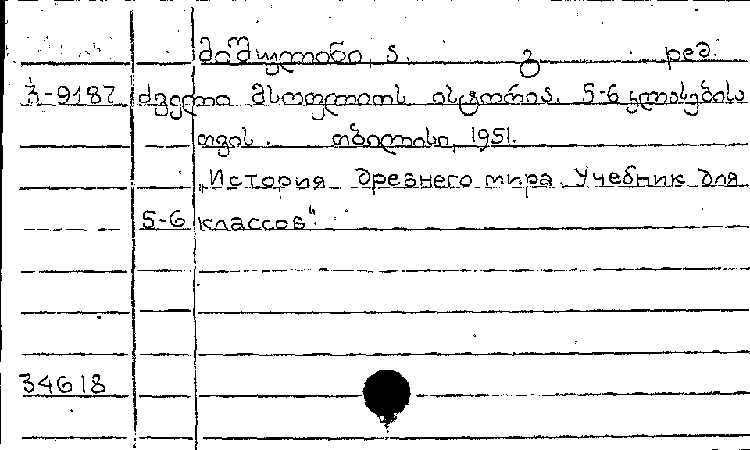 მიშულინი, ა. გ რედ.
ჰ-9187 ძველი მსოფლიოს ისტორია. 5-6 კლასების
თვის. თბილისი, 1951.
„История древнего мира. Учебник для
5-6 классов".
34618